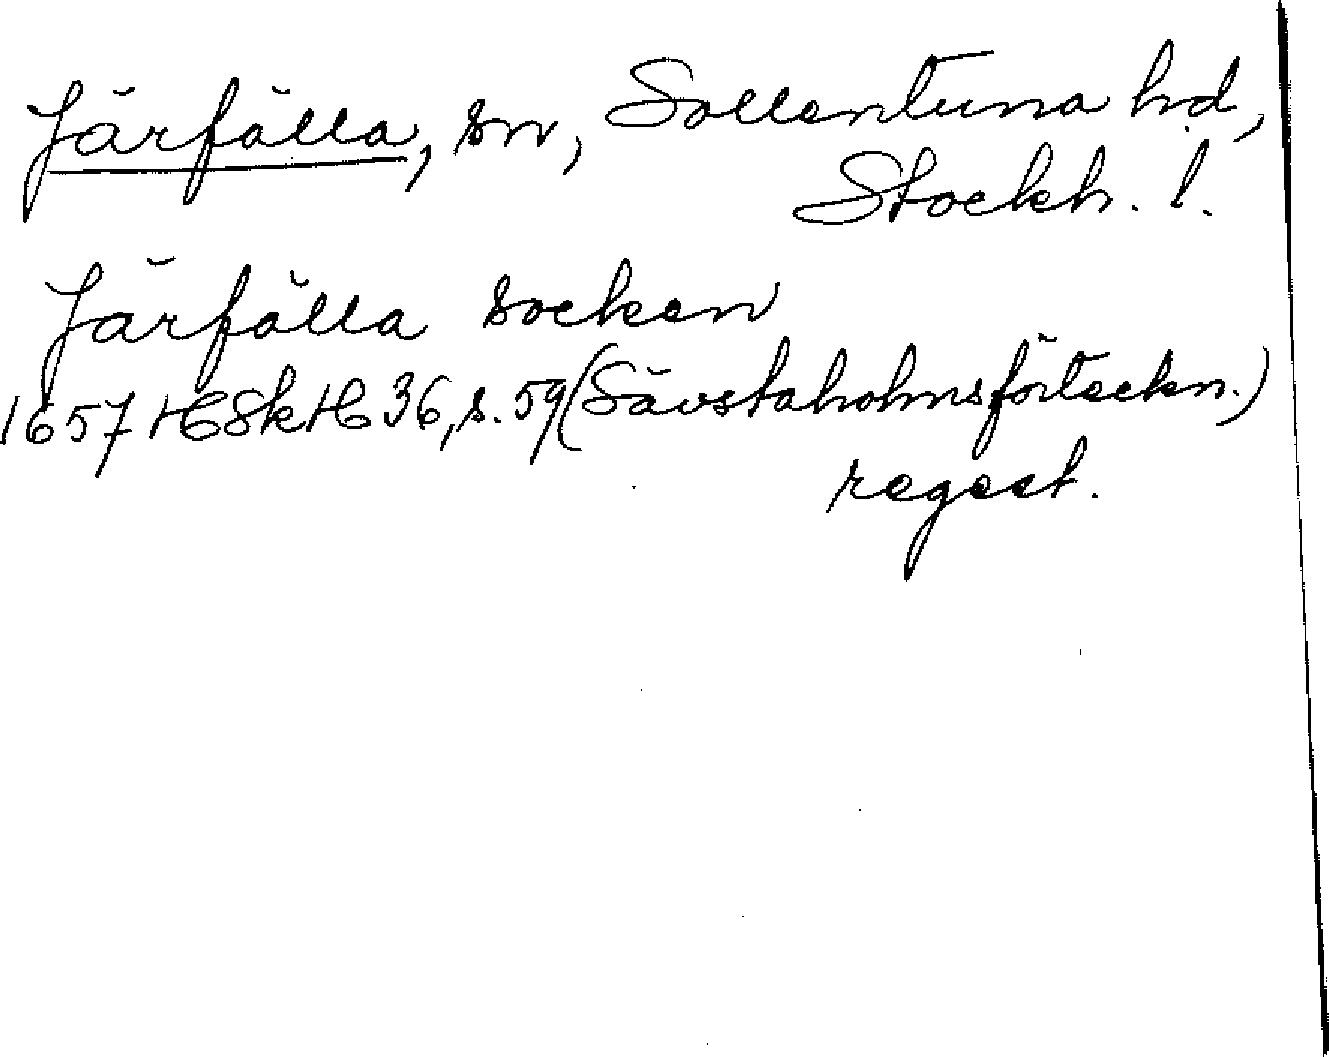 Järfälla, sn, Sollentuna hd,
Stockh. l.
Järfälla socken
1657 HSkH 36, s. 59 (Sävstaholmsförteckn.)
regest.